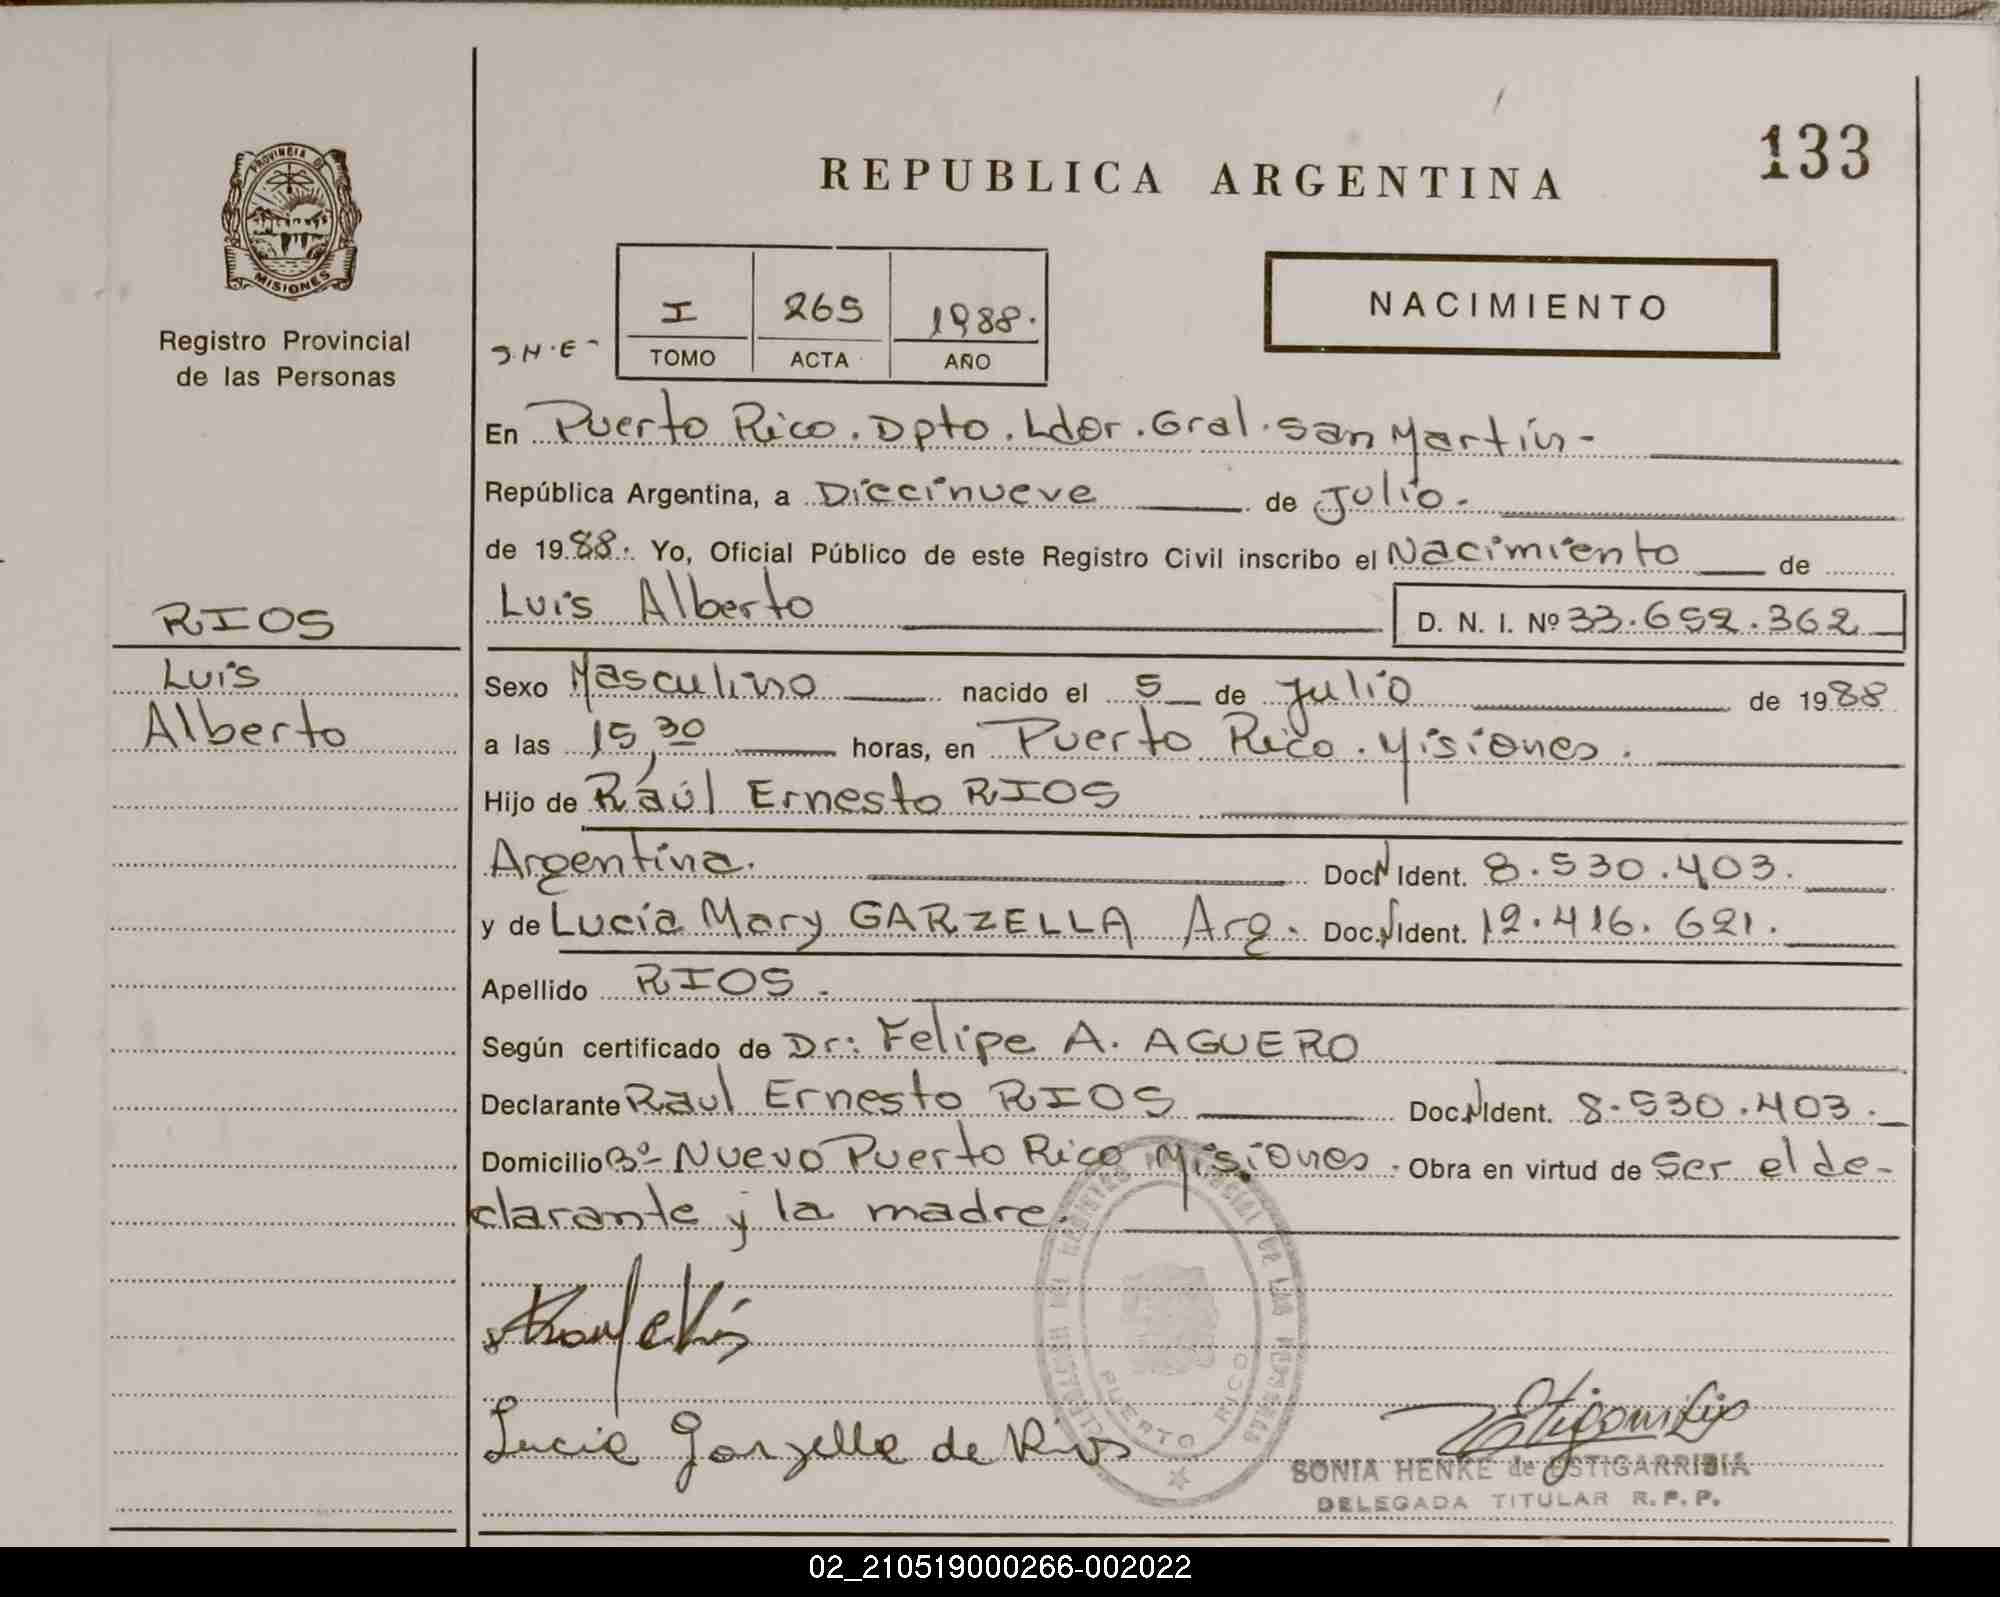 REPUBLICA ARGENTINA
133
PROVINCIA D
MISIONES
Registro Provincial
de las Personas
I 265 1988.
TOMO ACTA AÑO
S.H.E-
NACIMIENTO
En Puerto Rico. Dpto. Ldor. Gral. San Martín-
República Argentina, a Diecinueve de Julio.
de 1988. Yo, Oficial Público de este Registro Civil inscribo el Nacimiento de
Luis Alberto D. N. I. Nº 33.652.362
RIOS
Luis
Alberto
Sexo Masculino nacido el 5 de Julio de 1988
a las 15,30 horas, en Puerto Rico. Misiones.
Hijo de Raúl Ernesto RIOS
Argentina. Doc. N Ident. 8.530.403.
y de Lucía Mary GARZELLA Arg. Doc. N Ident. 12.416.621.
Apellido RIOS.
Según certificado de Dr: Felipe A. AGUERO
Declarante Raul Ernesto RIOS Doc. N Ident. 8.530.403.
Domicilio Bº- Nuevo Puerto Rico Misiones. Obra en virtud de Ser el de-
clarante y la madre.
Lucia Garzella de Rios
PUERTO RICO
SONIA HENKE de ESTIGARRIBIA
DELEGADA TITULAR R. P. P.
02_210519000266-002022